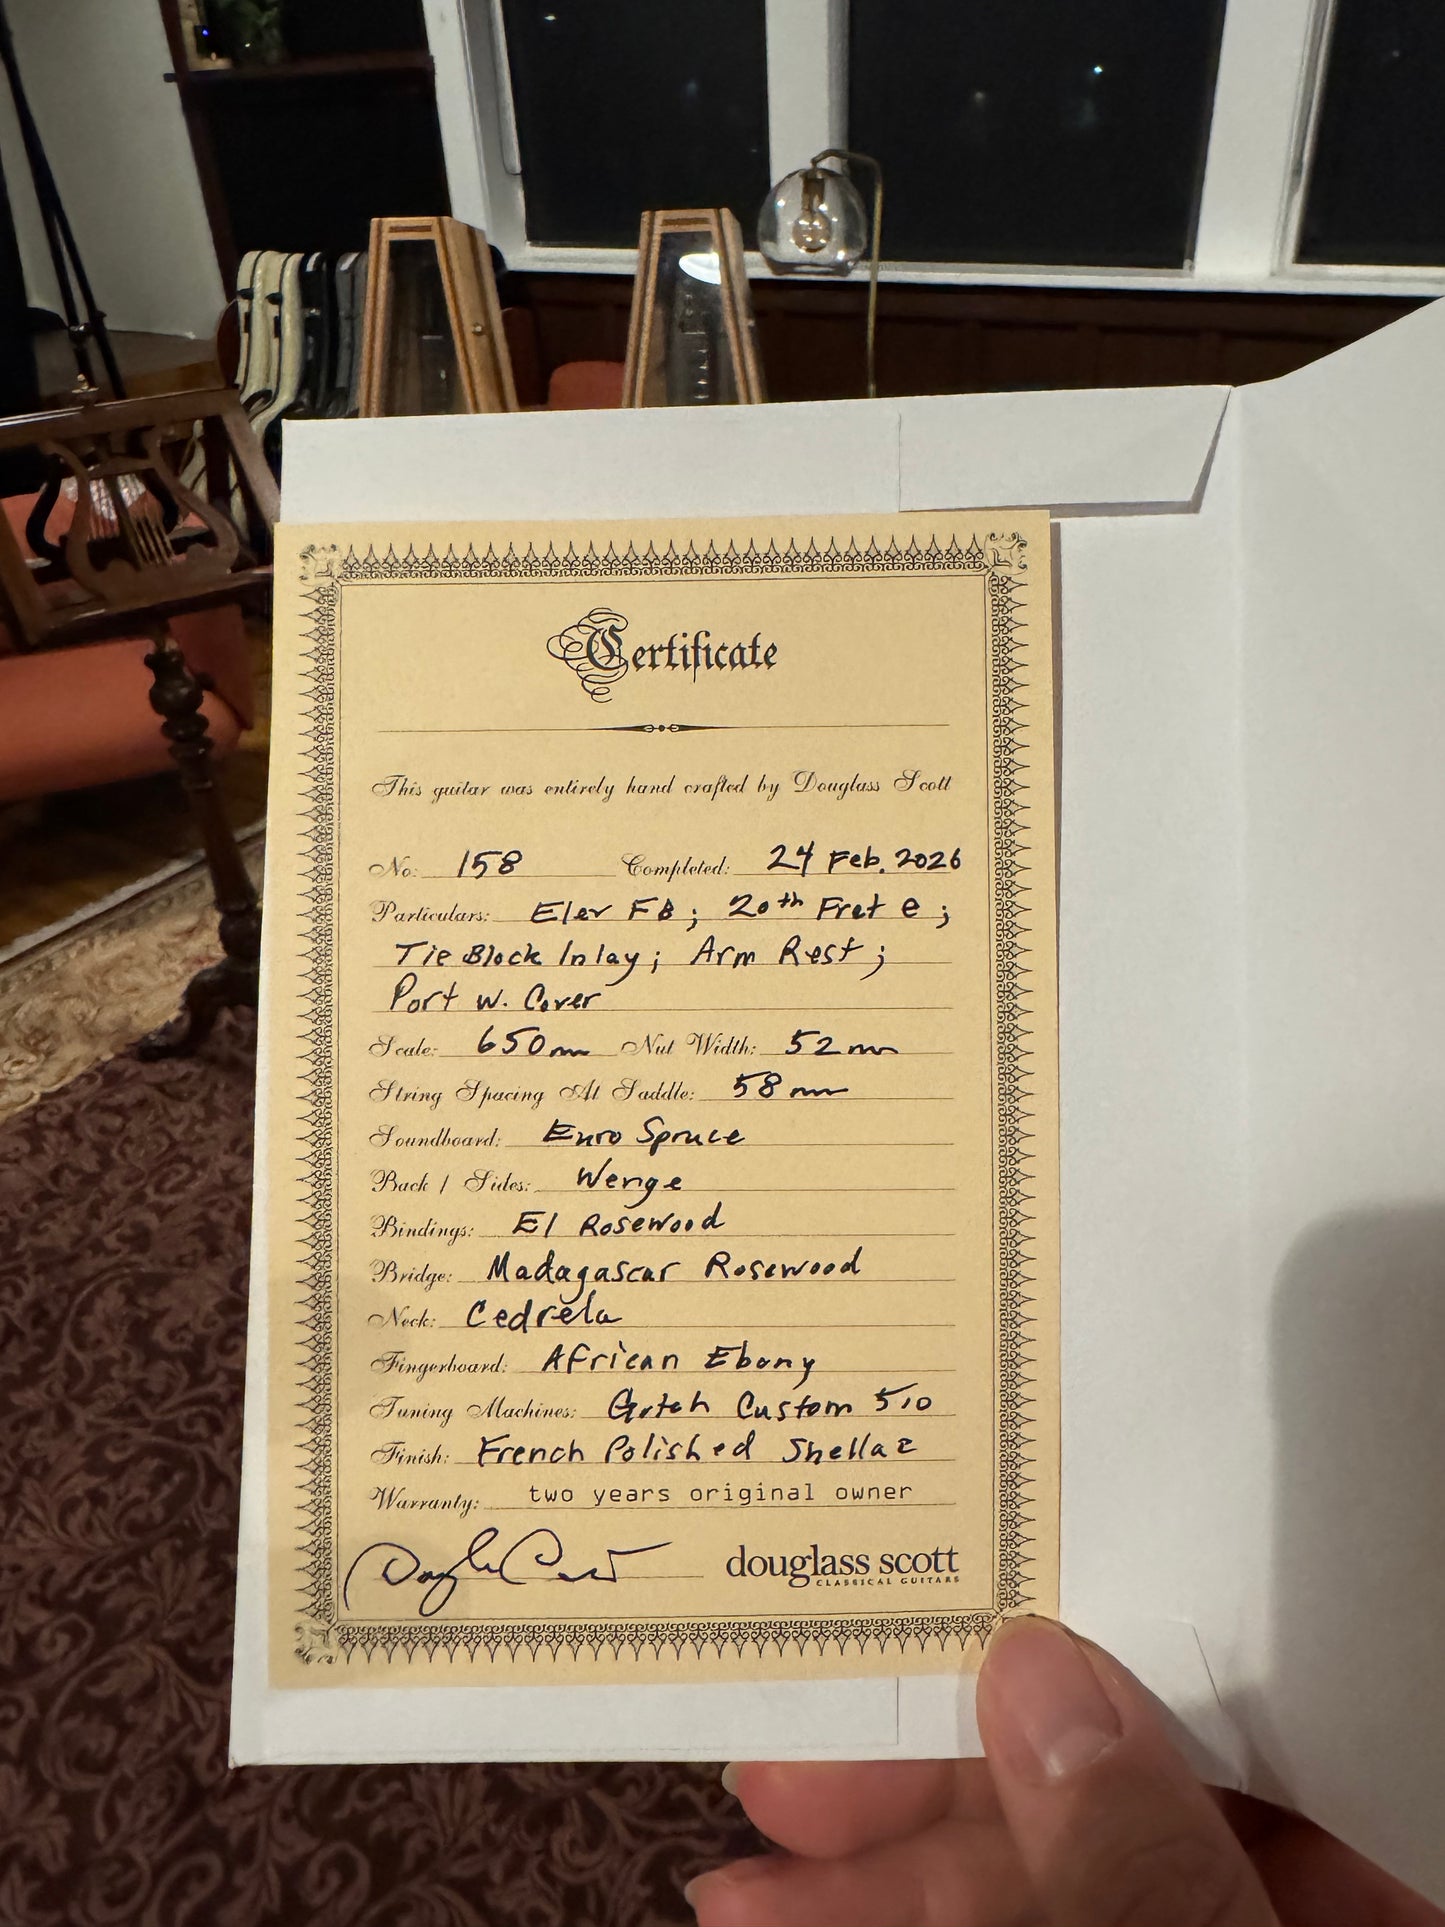 Certificate
This guitar was entirely hand crafted by Douglass Scott
No: 158 Completed: 24 Feb. 2026
Particulars: Elev FB; 20th Fret e;
Tie Block Inlay; Arm Rest;
Port w. Cover
Scale: 650mm Nut Width: 52mm
String Spacing At Saddle: 58mm
Soundboard: Euro Spruce
Back / Sides: Wenge
Bindings: EI Rosewood
Bridge: Madagascar Rosewood
Neck: Cedrela
Fingerboard: African Ebony
Tuning Machines: Gotoh Custom 510
Finish: French Polished Shellac
Warranty: two years original owner
douglass scott
CLASSICAL GUITARS